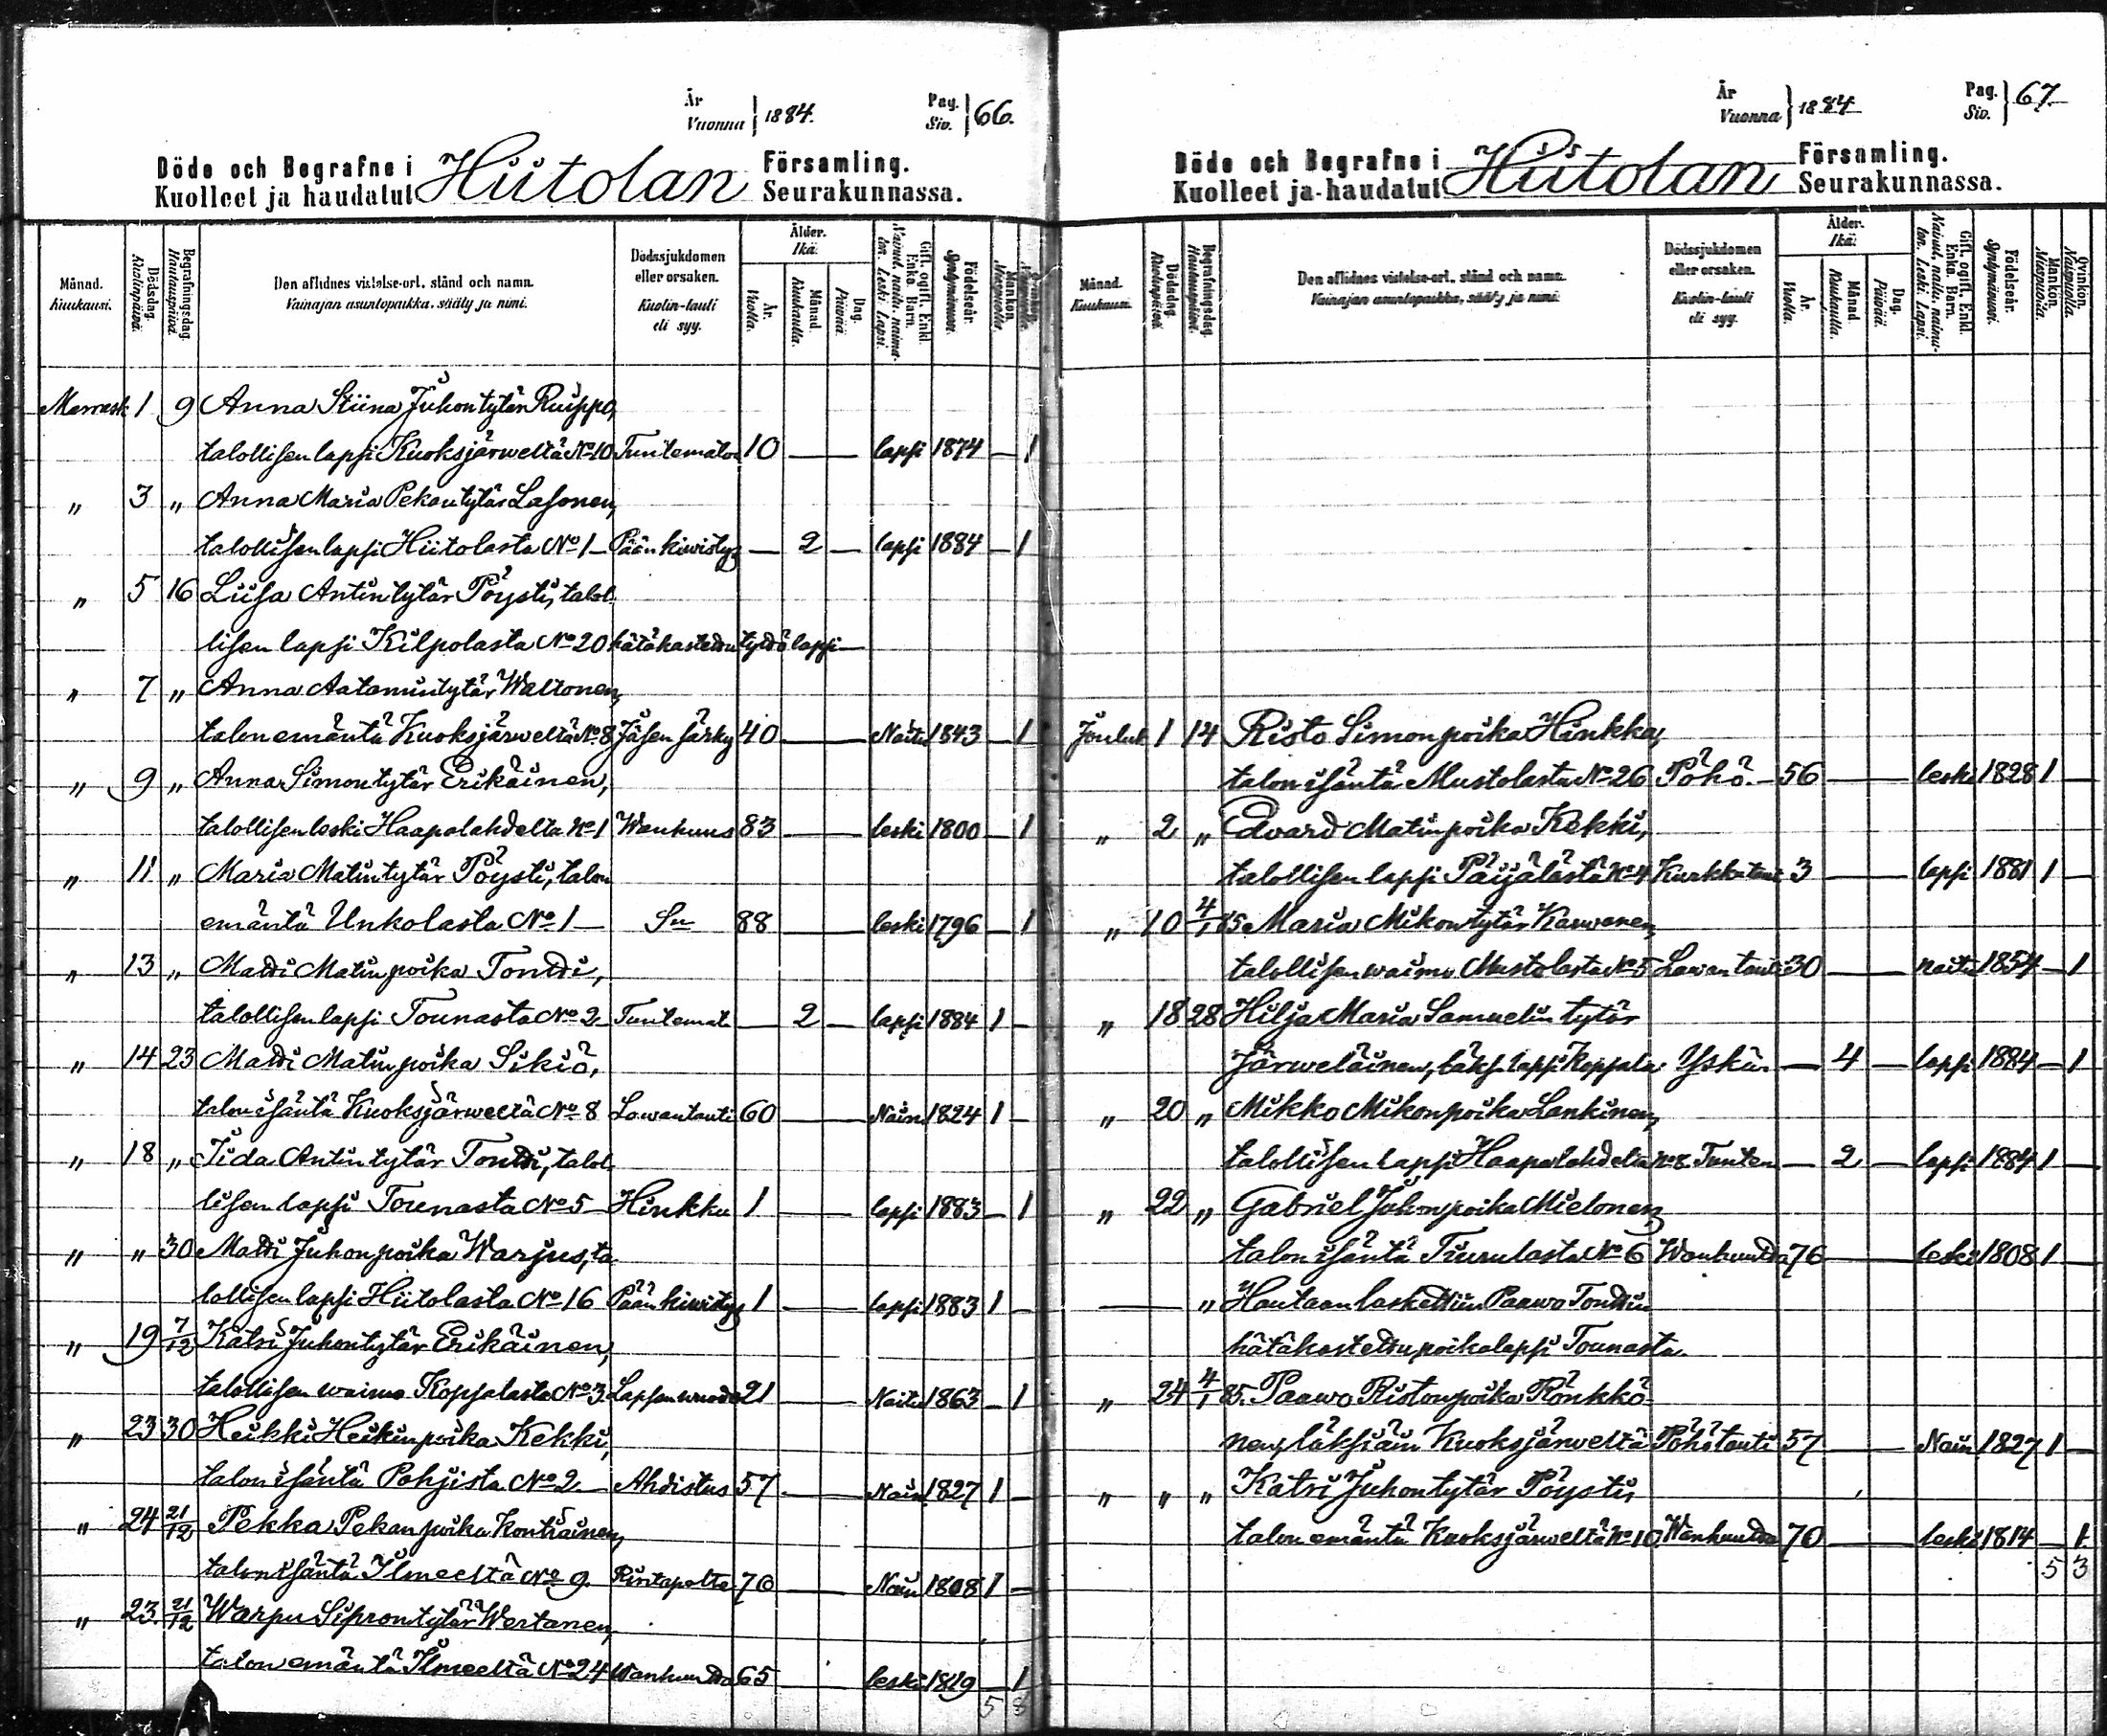 År
Vuonna } 1884.
Pag.
Siv. } 66.
Döde och Begrafne i Hiitolan Församling.
Kuolleet ja haudatut Seurakunnassa.
Månad. Kuukausi.
Dödsdag. Kuolinpäivä.
Begrafningsdag. Hautauspäivä.
Den aflidnes vistelse-ort, stånd och namn.
Vainajan asuntopaikka, sääty ja nimi.
Dödssjukdomen eller orsaken.
Kuolin-tauti eli syy.
Ålder. Ikä.
År. Vuotta.
Månad. Kuukautta.
Dag. Päivää.
Gift, ogift, Enkl. Enka. Barn.
Nainut, naitu, naimaton. Leski. Lapsi.
Födelseår. Syntymävuosi.
Mankön. Miespuolia.
Qvinkön. Naispuolia.
Marrask 1 9 Anna Stiina Juhontytär Ruippo,
talollisen lapsi Kuoksjärweltä No 10 Tuntematon 10 — lapsi 1874 — 1
" 3 " Anna Maria Pekantytär Lasonen,
talollisen lapsi Hiitolasta No 1 — Päänkiwistys — 2 — lapsi 1884 — 1
" 5 16 Liisa Antintytär Pöysti, talol
lisen lapsi Kilpolasta No 20 hätäkastettu tyttölapsi —
" 7 " Anna Aatamintytär Waltonen,
talon emäntä Kuoksjärweltä No 8 Jäsen särky 40 — Naitu 1843 — 1
" 9 " Anna Simontytär Erikäinen,
talollisen leski Haapalahdelta No 1 Wanhuus 83 — leski 1800 — 1
" 11 " Maria Matintytär Pöysti, talon
emäntä Unkolasta No 1 — Sn 88 — leski 1796 — 1
" 13 " Matti Matinpoika Tontti,
talollisen lapsi Tounasta No 2 — Tuntemat — 2 — lapsi 1884 1 —
" 14 23 Matti Matinpoika Sikiö,
talon isäntä Kuoksjärweltä No 8 Lawantauti 60 — Nain 1824 1 —
" 18 " Iida Antintytär Tontti, talol
lisen lapsi Tounasta No 5 — Hinkku 1 — lapsi 1883 — 1
" " 30 Matti Juhonpoika Warjus, ta
lollisen lapsi Hiitolasta No 16 Päänkiwistys 1 — lapsi 1883 1 —
" 19 7/12 Katri Juhontytär Erikäinen,
talollisen waimo Koppalasta No 3 Lapsenwuode 21 — Naitu 1863 — 1
" 23 30 Heikki Heikinpoika Kekki,
talon isäntä Pohjista No 2 — Ahdistus 57 — Nain 1827 1 —
" 24 21/12 Pekka Pekanpoika Kontiainen,
talon isäntä Ilmeeltä No 9. Rintapolte 76 — Nain 1808 1 —
" 23. 21/12 Warpu Sipromtytär Wertanen,
talon emäntä Ilmeeltä No 24 Wanhuutta 65 — leski 1819 — 1
5 8
År
Vuonna } 1884
Pag.
Siv. } 67.
Döde och Begrafne i Hiitolan Församling.
Kuolleet ja haudatut Seurakunnassa.
Månad. Kuukausi.
Dödsdag. Kuolinpäivä.
Begrafningsdag. Hautauspäivä.
Den aflidnes vistelse-ort, stånd och namn.
Vainajan asuntopaikka, sääty ja nimi.
Dödssjukdomen eller orsaken.
Kuolin-tauti eli syy.
Ålder. Ikä.
År. Vuotta.
Månad. Kuukautta.
Dag. Päivää.
Gift, ogift, Enkl. Enka. Barn.
Nainut, naitu, naimaton. Leski. Lapsi.
Födelseår. Syntymävuosi.
Mankön. Miespuolia.
Qvinkön. Naispuolia.
Jouluk 1 14 Risto Simonpoika Hinkka,
talon isäntä Mustolasta No 26 Pöhö. — 56 — leski 1828 1 —
" 2 " Edvard Matinpoika Kekki,
talollisen lapsi Päijälästä No 4 Kurkkutaut 3 — lapsi 1881 1 —
" 10 4/1 85 Maria Mikontytär Karwonen,
talollisen waimo Mustolasta No 5 Lawantauti 30 — naitu 1854 — 1
" 18 28 Hilja Maria Samuelintytär
Järweläinen, läks. lapsi Koppala Yskä. — 4 — lapsi 1884 — 1
" 20 " Mikko Mikonpoika Lankinen,
talollisen lapsi Haapalahdelta No 8. Tuntem — 2 — lapsi 1884 1 —
" 22 " Gabriel Juhonpoika Mielonen,
talon isäntä Tiurulasta No 6 Wanhuutta 76 — leski 1808 1 —
— " Hautaan laskettiin Paawo Tonttin
hätäkastettu poikalapsi Tounasta.
" 24 4/1 85. Paawo Ristonpoika Rönkkö
nen, läksiäin Kuoksjärweltä Pöhötauti 57 — Nain 1827 1 —
" " " Katri Juhontytär Pöysti,
talon emäntä Kuoksjärweltä No 10 Wanhuutta 70 — leski 1814 — 1
5 3